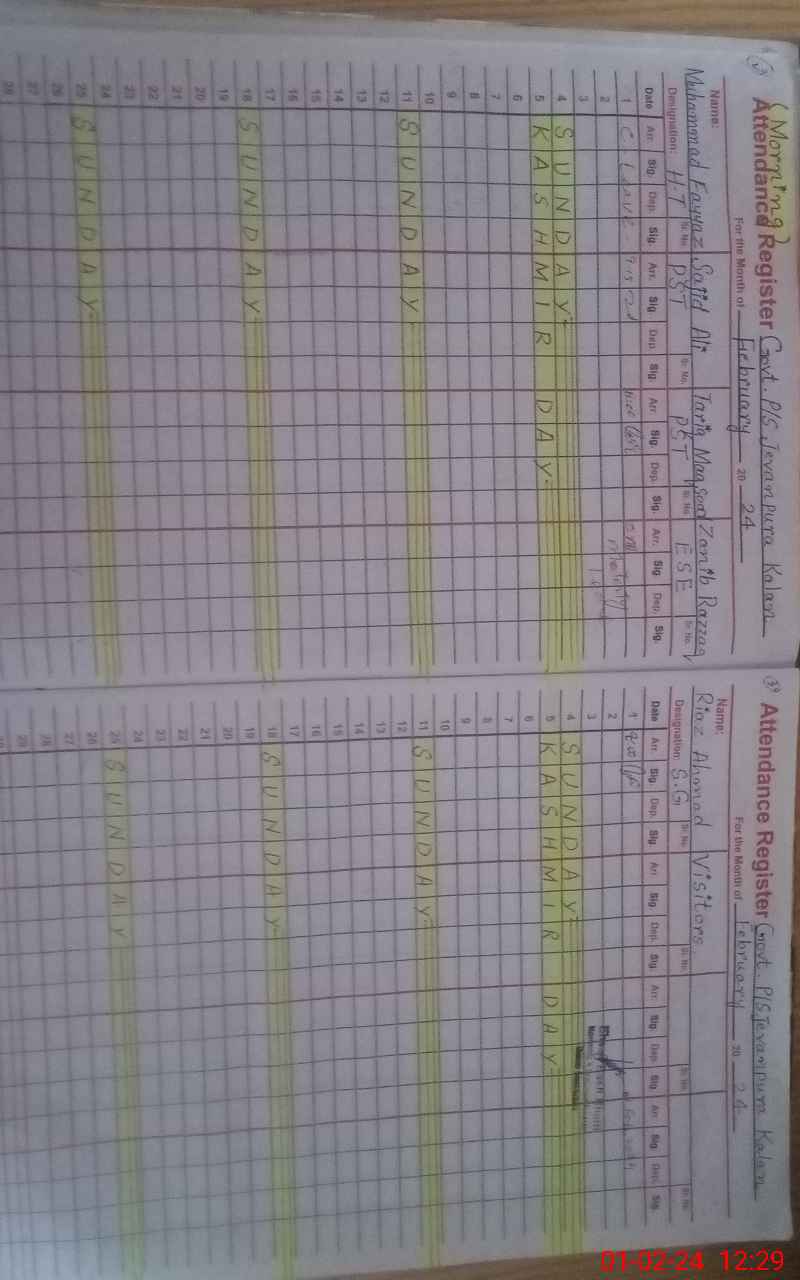 (Morning)
Attendance Register Govt. P/S Jevanpura Kalan
For the Month of February 20 24
Name: Muhammad Fayyaz Sajid Ali Tariq Maqsood Zanib Razzaq
Designation: H.T Sr. No. PST Sr. No. PST Sr. No. ESE Sr. No.
Date Arr. Sig. Dep. Sig. Arr. Sig. Dep. Sig. Arr. Sig. Dep. Sig. Arr. Sig. Dep. Sig.
1 C. Leave
2
3
4 SUNDAY
5 KASHMIR DAY
6
7
8
9
10
11 SUNDAY
12
13
14
15
16
17
18 SUNDAY
19
20
21
22
23
24
25 SUNDAY
26
27
28
Attendance Register Govt. P/S Jevanpura Kalan
For the Month of February 20 24
Name: Riaz Ahmad Visitors
Designation: S.G Sr. No. Sr. No. Sr. No. Sr. No.
Date Arr. Sig. Dep. Sig. Arr. Sig. Dep. Sig. Arr. Sig. Dep. Sig. Arr. Sig. Dep. Sig.
1
2
3
4 SUNDAY
5 KASHMIR DAY
6
7
8
9
10
11 SUNDAY
12
13
14
15
16
17
18 SUNDAY
19
20
21
22
23
24
25 SUNDAY
26
27
28
29
01-02-24 12:29